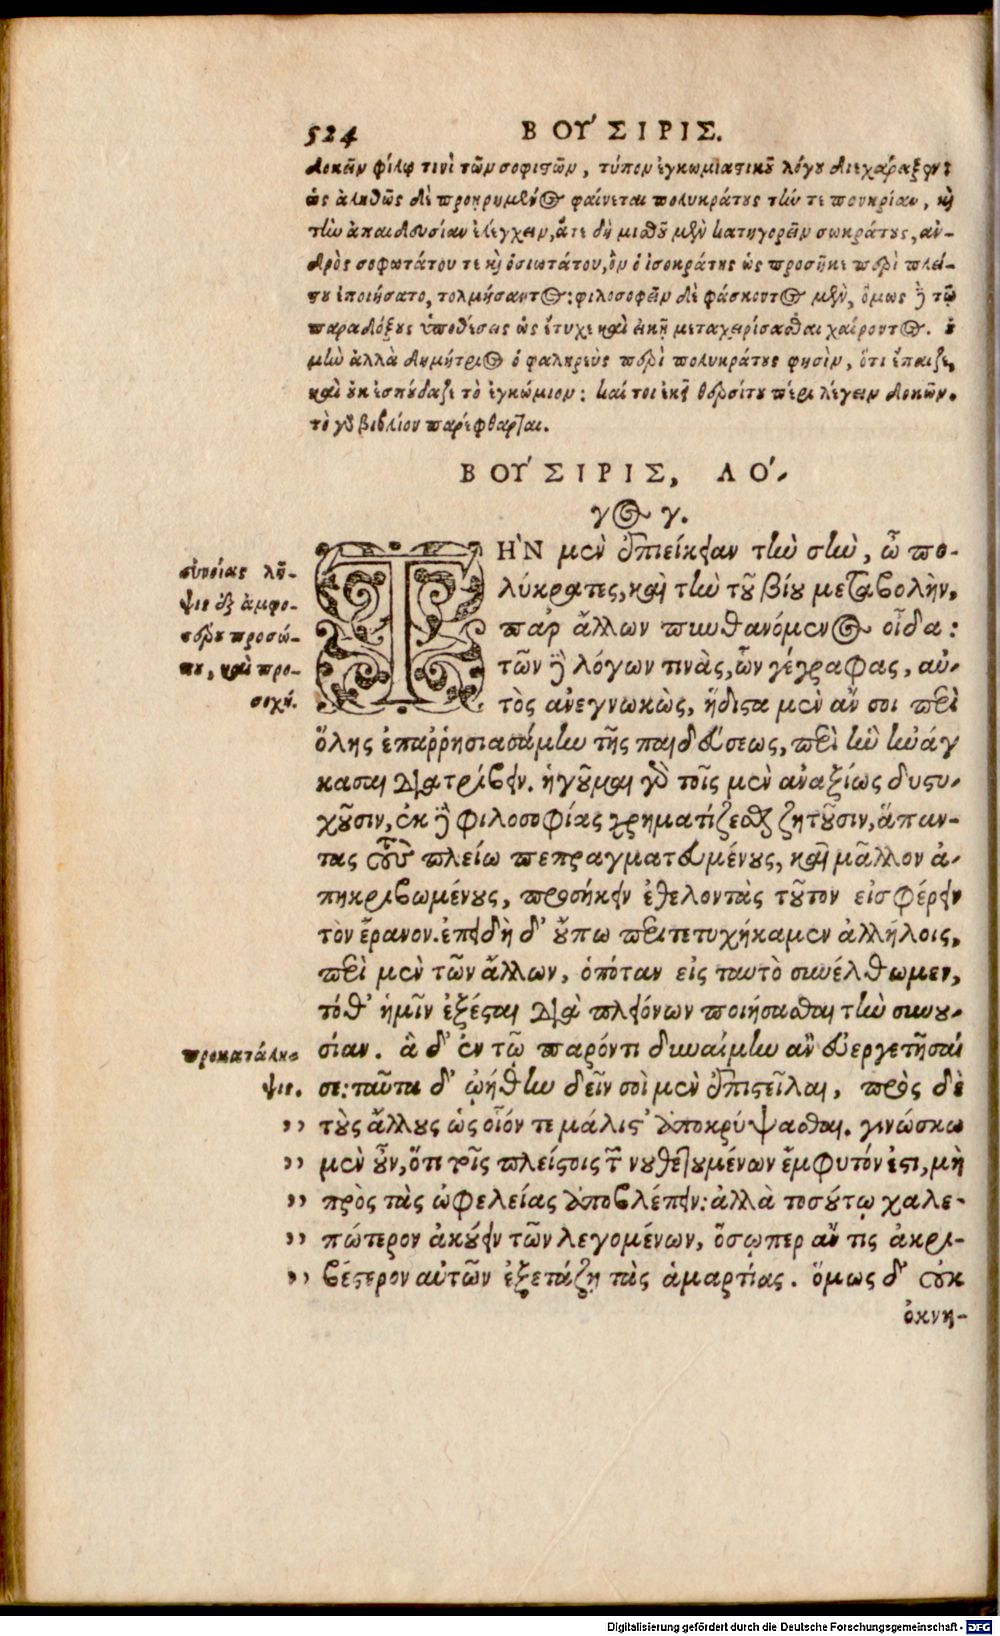 524
ΒΟΎΣΙΡΙΣ.
δοκεῖν φίλῳ τινὶ τῶν σοφιστῶν, τύπον ἐγκωμιαστικοῦ λόγου διεχάραξεν:
ὡς ἀληθῶς δὲ προῃρημένος φαίνεται πολυκράτους τήν τε πονηρίαν, καὶ
τὴν ἀπαιδευσίαν ἐλέγχειν, ἅτε δὴ μισθοῦ μὲν κατηγορεῖν σωκράτους, ἀν-
δρὸς σοφωτάτου τε καὶ ὁσιωτάτου, ὃν ὁ ἰσοκράτης ὡς προσῆκε περὶ πλεί-
στου ἐποιήσατο, τολμήσαντος: φιλοσοφεῖν δὲ φάσκοντος μὲν, ὅμως δὲ τῷ
παραδόξους ὑποθέσεις ὡς ἔτυχε καὶ εἰκῆ μεταχειρίσασθαι χαίροντος. οὐ
μὴν ἀλλὰ δημήτριος ὁ φαληρεὺς περὶ πολυκράτους φησὶν, ὅτι ἔπαιξε,
καὶ οὐκ ἐσπούδαξε τὸ ἐγκώμιον: καί τοι ἐκεῖ θερσίτου πέρι λέγειν δοκῶν.
τὸ γὰρ βιβλίον παρέφθαρται.
ΒΟΎΣΙΡΙΣ, ΛΌ-
γος γ.
ΤῊΝ μὲν ἐπιείκειαν τὴν σὴν, ὦ πο-
λύκρατες, καὶ τὴν τοῦ βίου μεταβολὴν,
παρ ἄλλων πυνθανόμενος οἶδα:
τῶν δὲ λόγων τινὰς, ὧν γέγραφας, αὐ-
τὸς ἀνεγνωκὼς, ἥδιστα μὲν ἄν σοι περὶ
ὅλης ἐπαῤῥησιασάμην τῆς παιδεύσεως, περὶ ἣν ἠνάγ
κασαι διατρίβειν. ἡγοῦμαι γὰρ τοῖς μὲν ἀναξίως δυστυ-
χοῦσιν, ἐκ δὲ φιλοσοφίας χρηματίζεσθαι ζητοῦσιν, ἅπαν-
τας τοὺς πλείω πεπραγματευμένους, καὶ μᾶλλον ἀ-
πηκριβωμένους, προσήκειν ἐθελοντὰς τοῦτον εἰσφέρειν
τὸν ἔρανον. ἐπειδὴ δ' οὔπω περιτετυχήκαμεν ἀλλήλοις,
περὶ μὲν τῶν ἄλλων, ὁπόταν εἰς ταυτὸ συνέλθωμεν,
τόθ' ἡμῖν ἐξέσται διὰ πλειόνων ποιήσασθαι τὴν συνου-
σίαν. ἃ δ' ἐν τῷ παρόντι δυναίμην ἂν εὐεργετῆσαί
σε: ταῦτα δ' ᾠήθην δεῖν σοὶ μὲν ἐπιστεῖλαι, πρὸς δὲ
τοὺς ἄλλους ὡς οἷόν τε μάλιστ' ἀποκρύψασθαι. γινώσκω
μὲν οὖν, ὅτι τοῖς πλείστοις τῶν νουθετουμένων ἔμφυτόν ἐστι, μὴ
πρὸς τὰς ὠφελείας ἀποβλέπειν: ἀλλὰ τοσούτῳ χαλε-
πώτερον ἀκούειν τῶν λεγομένων, ὅσῳπερ ἄν τις ἀκρι-
βέστερον αὐτῶν ἐξετάζῃ τὰς ἁμαρτίας. ὅμως δ' οὐκ
ὀκνη-
εὐνοίας λῆ-
ψις ἐξ ἀμφο-
τέρου προσώ-
που, καὶ προ-
σοχή.
προκατάλη-
ψις.
,,
,,
,,
,,
,,
Digitalisierung gefördert durch die Deutsche Forschungsgemeinschaft - DFG